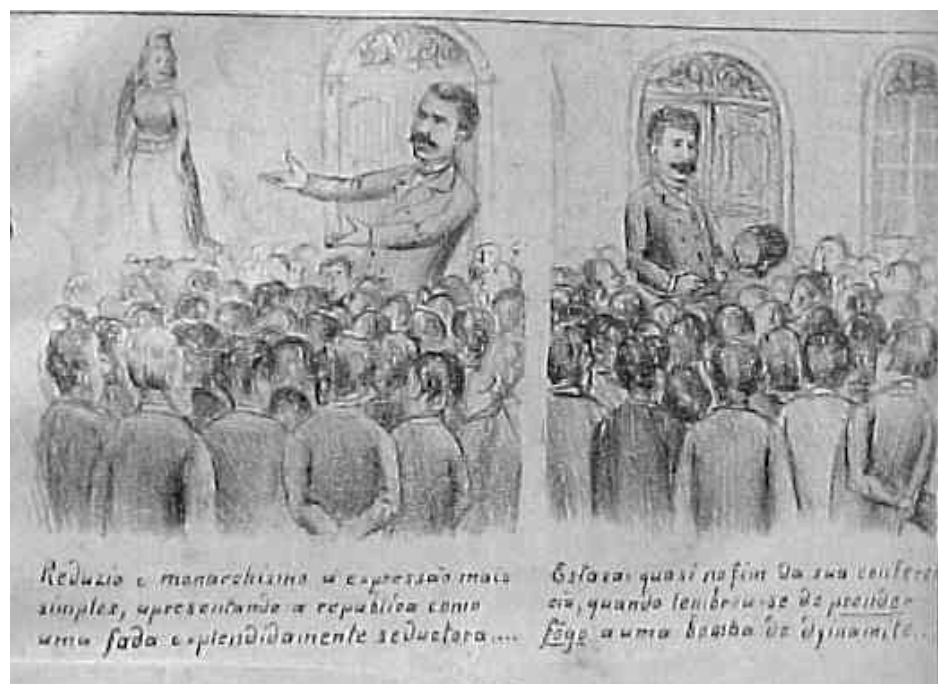 Reduzio o monarchismo a expressão mais
simples, apresentando a republica como
uma fada esplendidamente seductora....
Estava quasi no fim da sua conferen
cia, quando lembrou-se de prender
fôgo a uma bomba de dynamite..